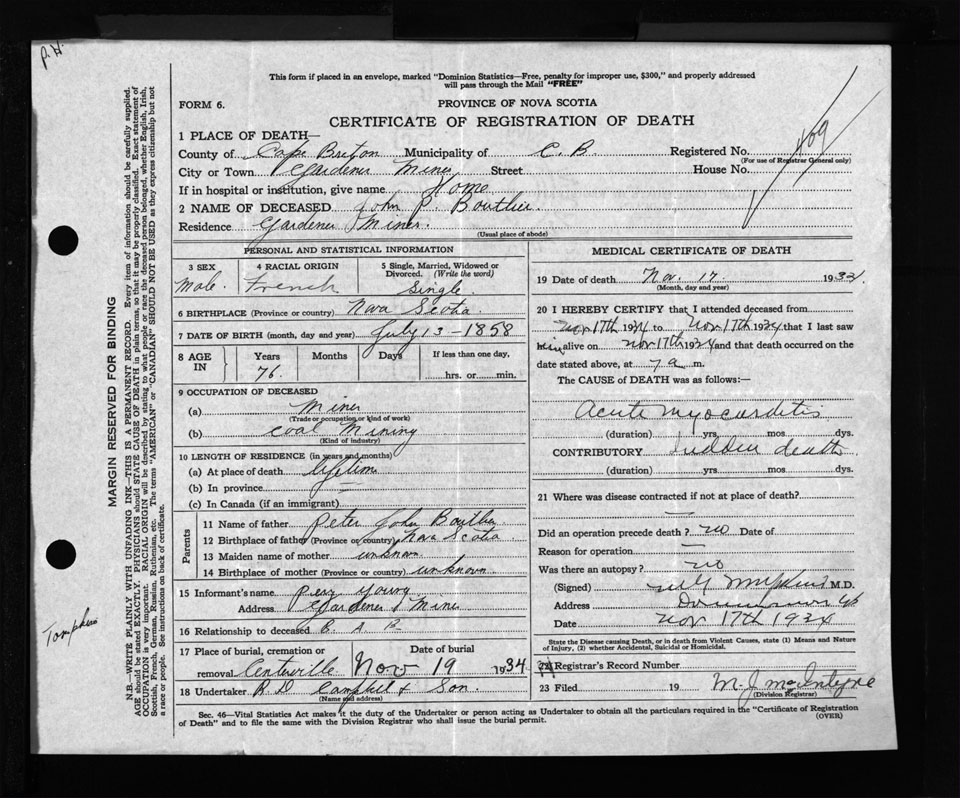 P. H.
This form if placed in an envelope, marked "Dominion Statistics—Free, penalty for improper use, $300," and properly addressed
will pass through the Mail "FREE"
FORM 6.
PROVINCE OF NOVA SCOTIA
CERTIFICATE OF REGISTRATION OF DEATH
1 PLACE OF DEATH—
County of Cape Breton Municipality of C. B. Registered No. 469
(For use of Registrar General only)
City or Town Gardener Mines Street House No.
If in hospital or institution, give name Home
2 NAME OF DECEASED John P. Boutlier.
Residence Gardener Mines.
(Usual place of abode)
PERSONAL AND STATISTICAL INFORMATION
3 SEX Male. 4 RACIAL ORIGIN French 5 Single, Married, Widowed or Divorced. (Write the word) Single.
6 BIRTHPLACE (Province or country) Nova Scotia.
7 DATE OF BIRTH (month, day and year) July 13 - 1858
8 AGE IN Years 76. Months Days If less than one day, hrs. or min.
9 OCCUPATION OF DECEASED
(a) Miner
(Trade or occupation or kind of work)
(b) Coal Mining
(Kind of industry)
10 LENGTH OF RESIDENCE (in years and months)
(a) At place of death lifetime
(b) In province —
(c) In Canada (if an immigrant)
Parents
11 Name of father Peter John Boutlier
12 Birthplace of father (Province or country) Nova Scotia
13 Maiden name of mother unknown
14 Birthplace of mother (Province or country) unknown
15 Informant's name Percy Young
Address Gardener Mines
16 Relationship to deceased
17 Place of burial, cremation or removal Centerville Date of burial Nov 19 1934
18 Undertaker R. D. Campbell & Son.
(Name and address)
MEDICAL CERTIFICATE OF DEATH
19 Date of death Nov. 17. 1934.
(Month, day and year)
20 I HEREBY CERTIFY that I attended deceased from
Nov 17th 1934 to Nov 17th 1934 that I last saw
him alive on Nov 17th 1934 and that death occurred on the
date stated above, at 7 a m.
The CAUSE of DEATH was as follows:—
Acute Myocarditis
(duration) yrs. mos. dys.
CONTRIBUTORY Sudden death
(duration) yrs. mos. dys.
21 Where was disease contracted if not at place of death?
—
Did an operation precede death? no Date of
Reason for operation —
Was there an autopsy? no
(Signed) M.D.
Address
Date Nov 17th 1934
State the Disease causing Death, or in death from Violent Causes, state (1) Means and Nature
of Injury, (2) whether Accidental, Suicidal or Homicidal.
22 Registrar's Record Number
23 Filed 19 M. J. McIntyre
(Division Registrar)
Sec. 46—Vital Statistics Act makes it the duty of the Undertaker or person acting as Undertaker to obtain all the particulars required in the "Certificate of Registration
of Death" and to file the same with the Division Registrar who shall issue the burial permit. (OVER)
MARGIN RESERVED FOR BINDING
N.B.—WRITE PLAINLY WITH UNFADING INK—THIS IS A PERMANENT RECORD. Every item of information should be carefully supplied.
AGE should be stated EXACTLY. PHYSICIANS should STATE CAUSE OF DEATH in plain terms, so that it may be properly classified. Exact statement of
OCCUPATION is very important. RACIAL ORIGIN will be described by stating to what people or race the deceased person belonged, whether English, Irish,
Scottish, French, German, Russian, Ruthenian, etc. The terms "AMERICAN" or "CANADIAN" SHOULD NOT BE USED as they express citizenship but not
a race or people. See instructions on back of certificate.
Tompkins